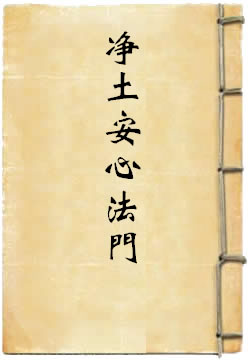 净土安心法門